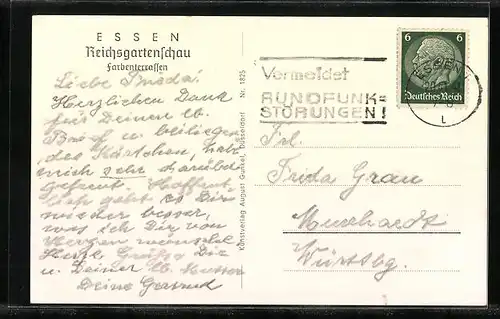 ESSEN
Reichsgartenschau
Farbenterrassen
Liebe Frieda!
Herzlichen Dank
für Deinen lb.
Brief u. beiliegen-
des Kärtchen, habe
mich sehr darüber
gefreut. Hoffent-
lich geht es Dir
wieder besser,
was ich Dir von
Herzen wünsche.
Herzl. Grüße Dir
u. Deiner lb. Mutter
Deine Gertrud
Kunstverlag August Gunkel, Düsseldorf Nr. 1825
Vermeidet
RUNDFUNK=
STÖRUNGEN!
6 6
Deutsches Reich
ESSEN
L
Frl.
Frida Grau
Murrhardt
Württbg.